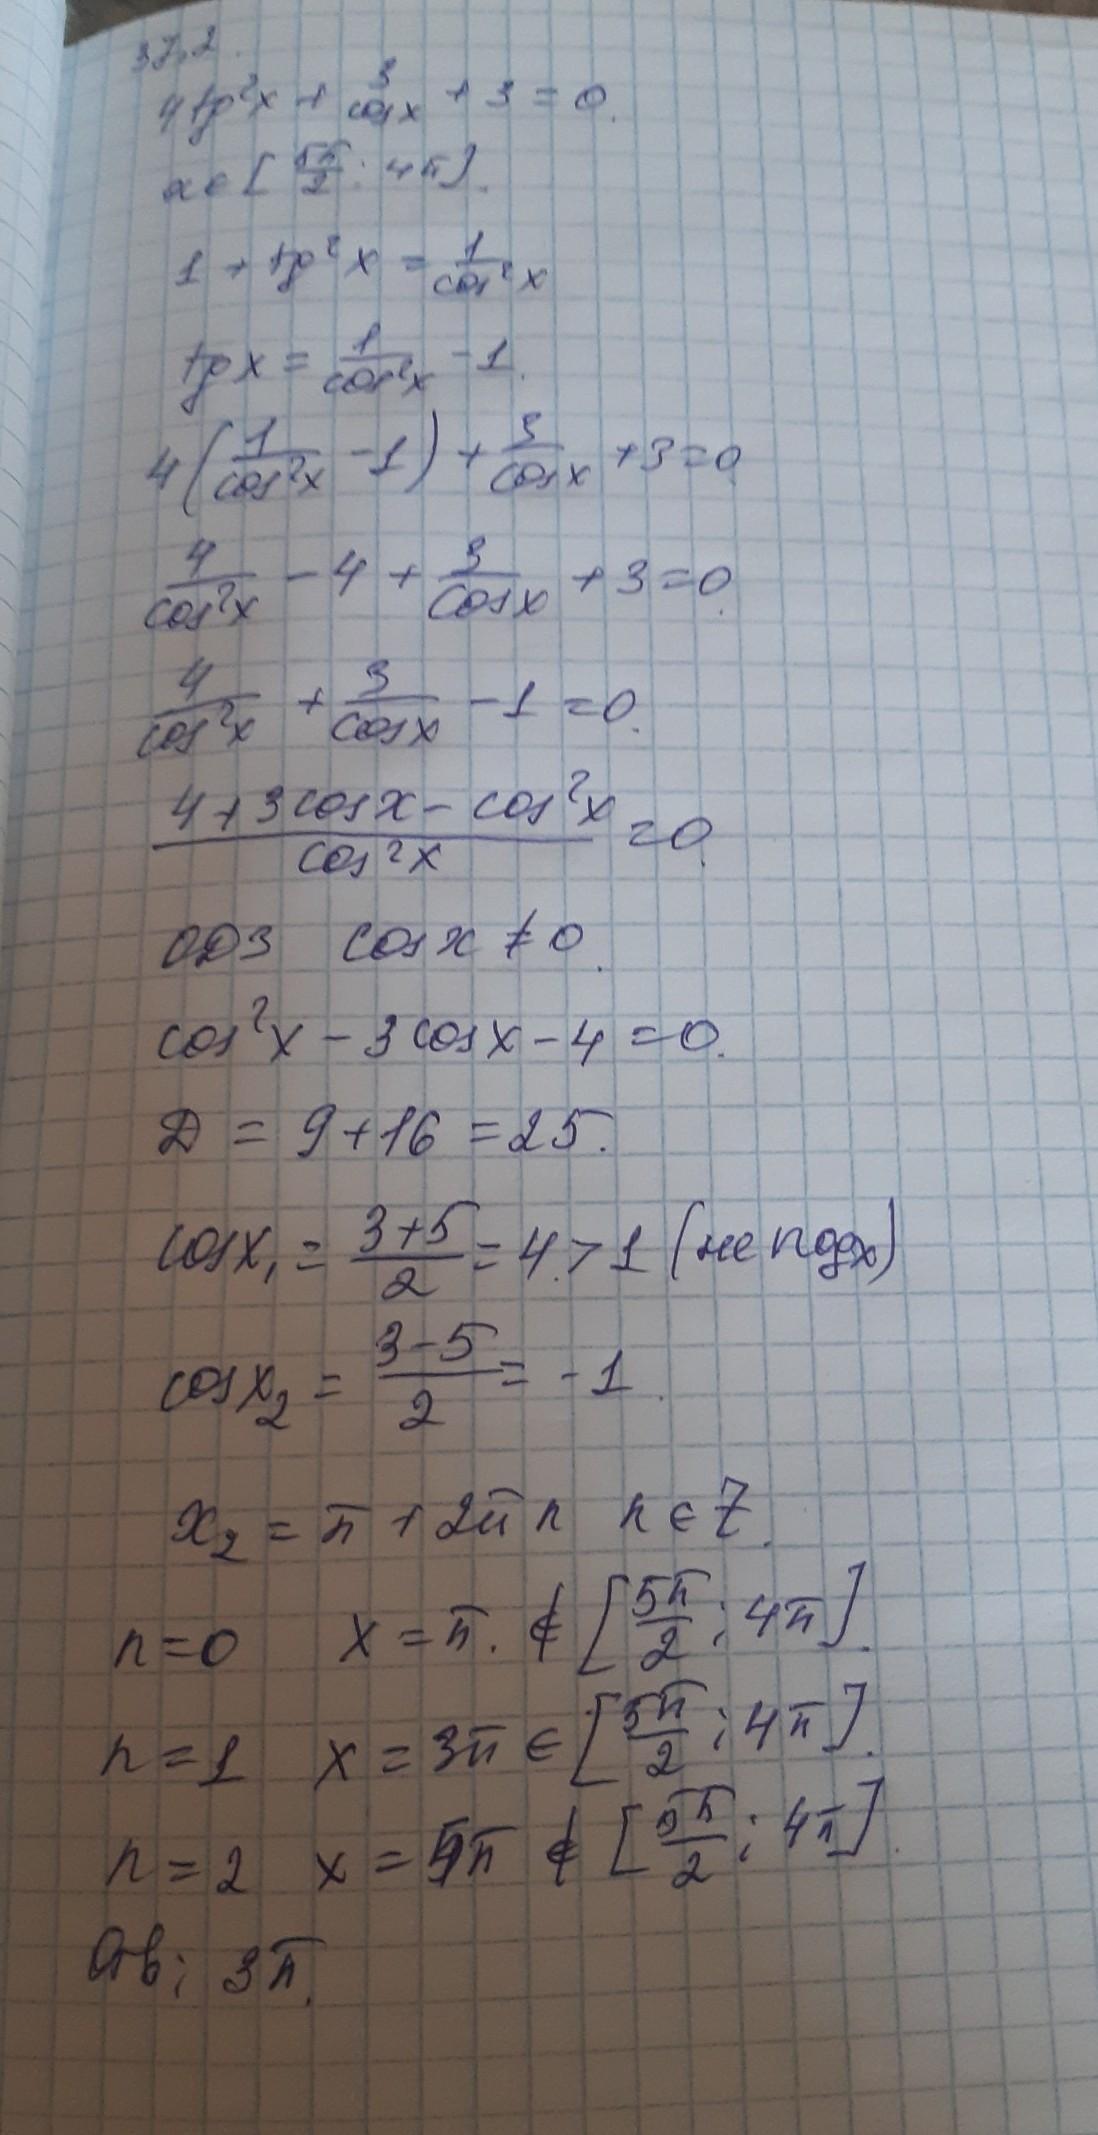 37.2.
4tg²x + 3/cosx + 3 = 0.
x∈[5π/2; 4π].
1 + tg²x = 1/cos²x
tgx = 1/cos²x - 1.
4(1/cos²x - 1) + 3/cosx + 3 = 0
4/cos²x - 4 + 3/cosx + 3 = 0.
4/cos²x + 3/cosx - 1 = 0.
(4 + 3cosx - cos²x)/cos²x = 0.
ОДЗ cosx ≠ 0.
cos²x - 3cosx - 4 = 0.
Д = 9 + 16 = 25.
cosx₁ = (3+5)/2 = 4 > 1 (не подх)
cosx₂ = (3-5)/2 = -1.
x₂ = π + 2πn n∈Z.
n=0 x = π. ∉ [5π/2; 4π].
n=1 x = 3π ∈ [5π/2; 4π].
n=2 x = 5π ∉ [5π/2; 4π].
Отв: 3π.